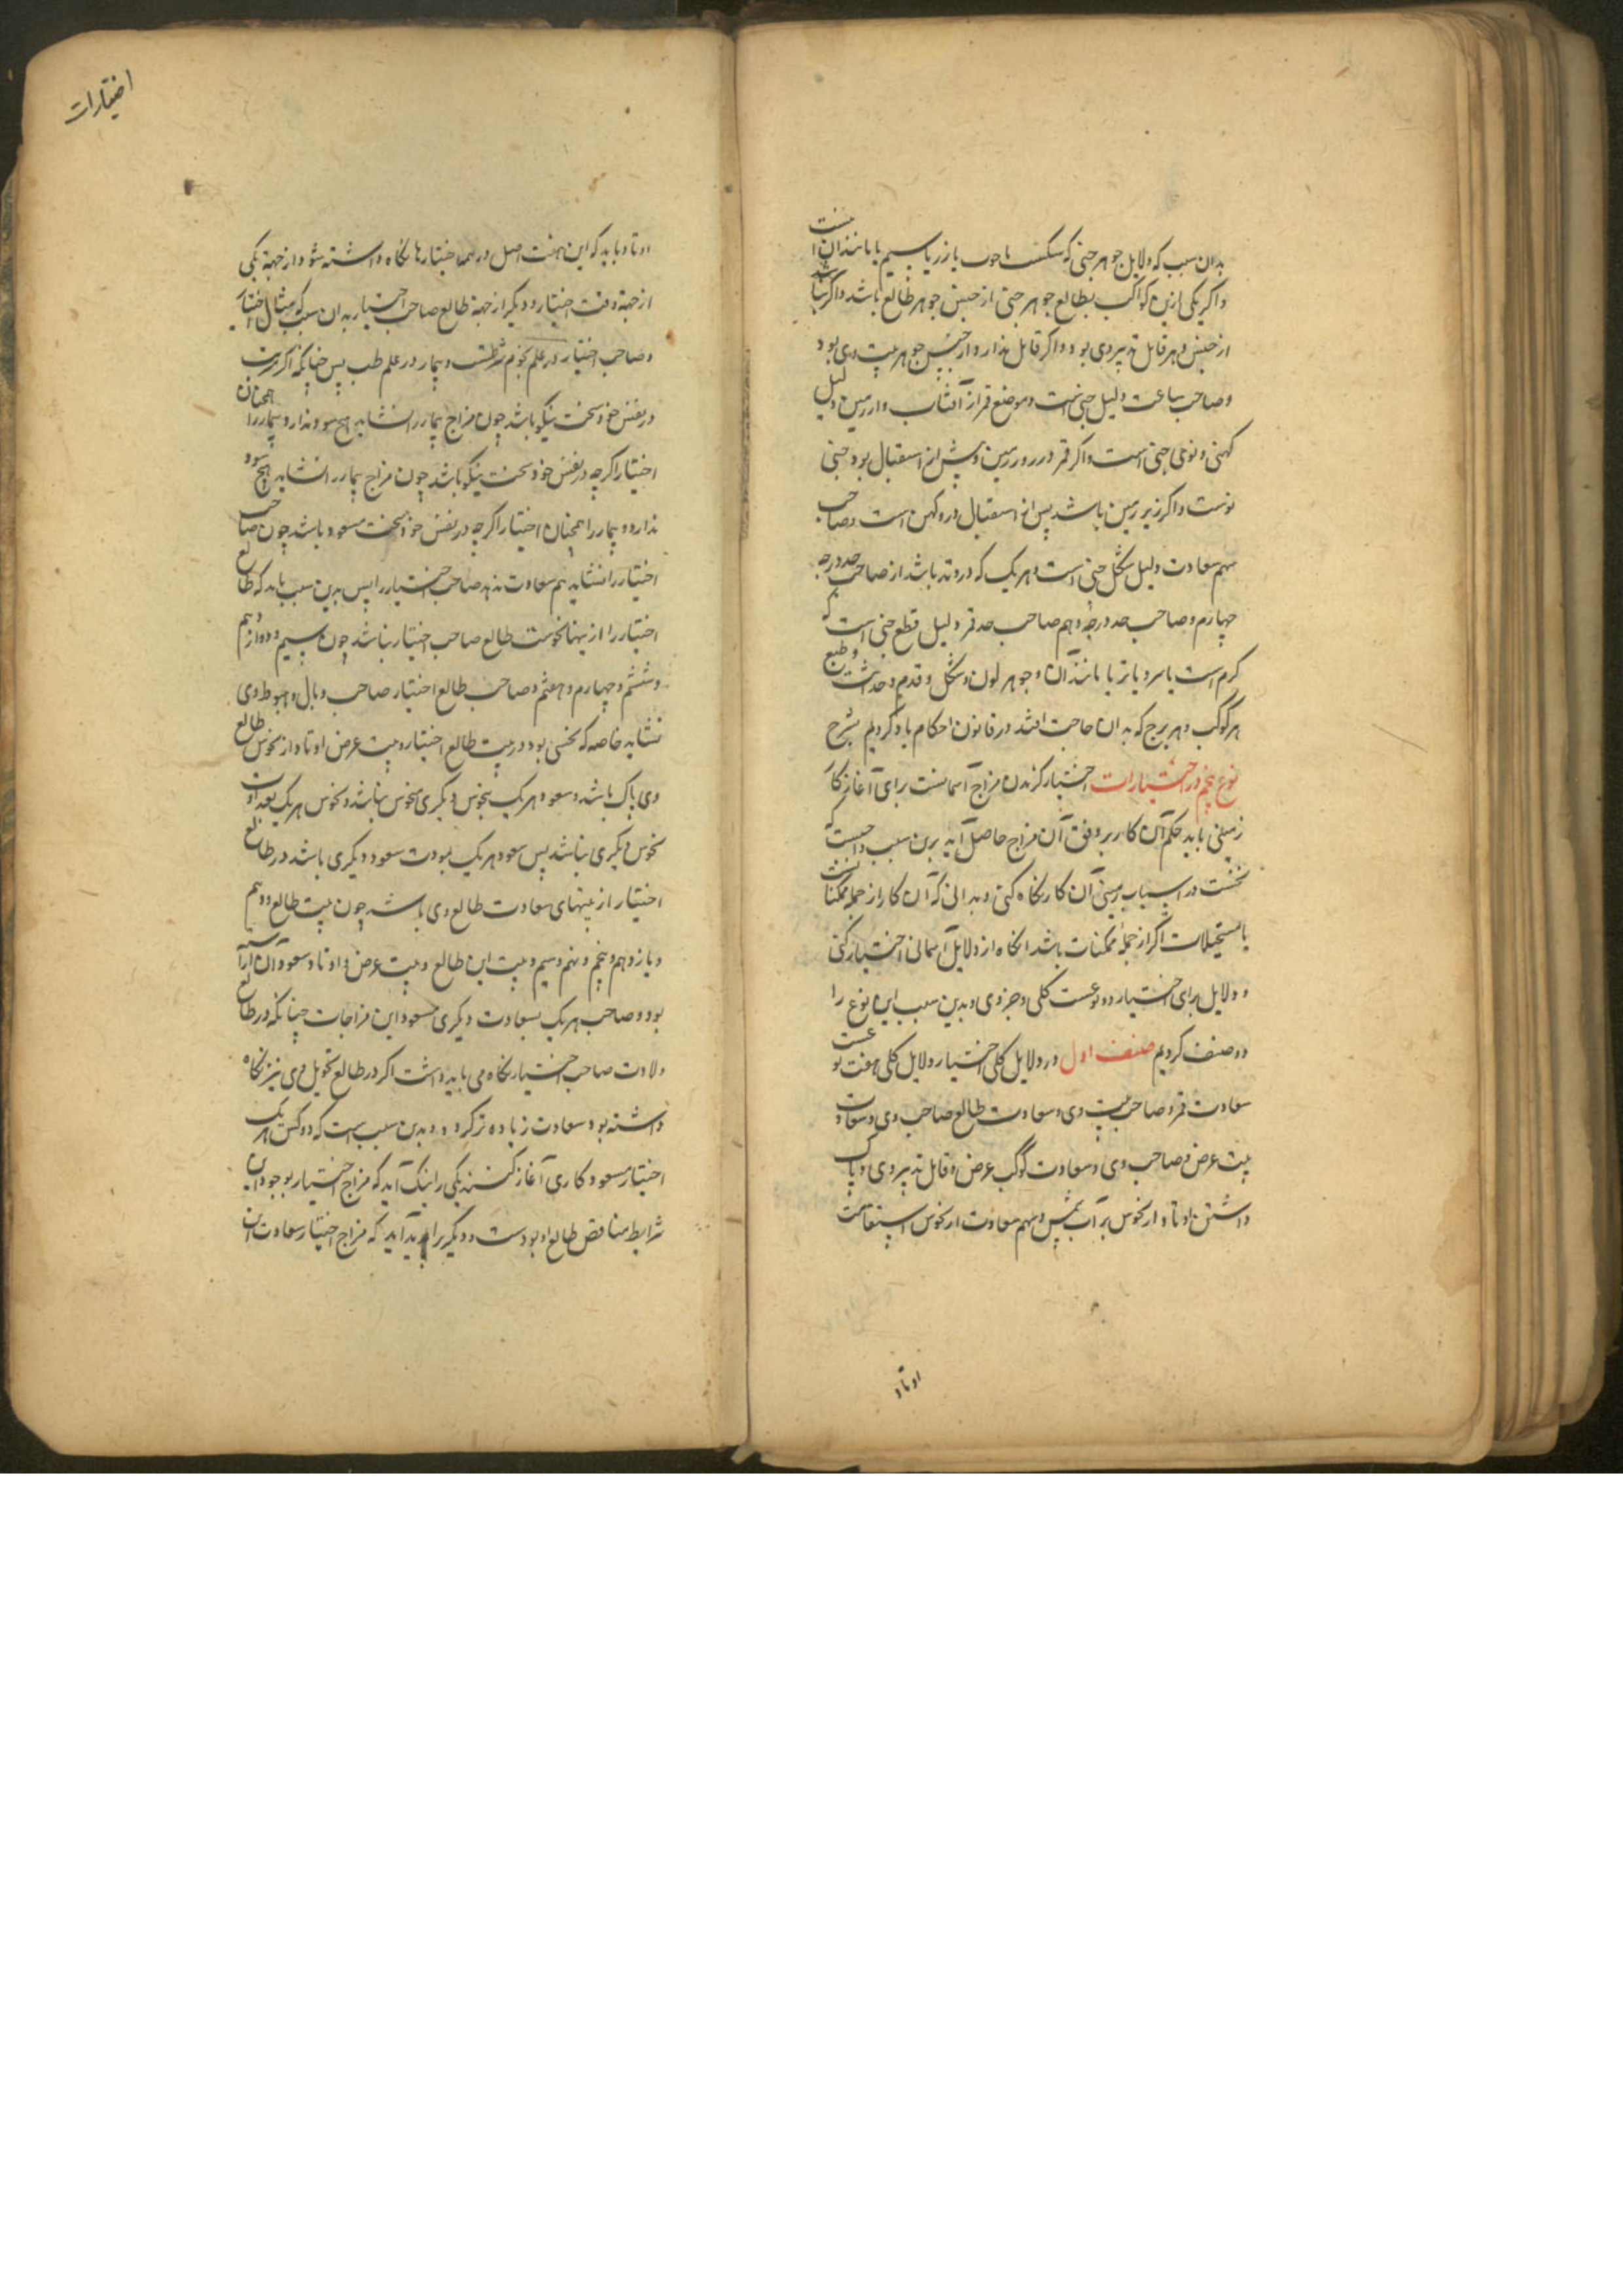 بدان سبب که دلایل جوهر خبی که سنکست یا چوب یا زر یا سیم یا مانند آن
واکر یکی ازین کواکب بطالع جوهر خبی از جنس جوهر طالع باشد واکر
از جنس وهر قابل تدبیر وی بود واکر قابل ندارد از جنس جوهر بیت وی بود
وصاحب ساعت دلیل خبی است وموضع قمر از آفتاب واز زمین دلیل
کهنی و نوی خبی است واکر قمر در روز زمین وپیش از استقبال بود خبی
نوست واکر زیر زمین باشد پس از استقبال بود کهن است وصاحب
سهم سعادت دلیل شکل خبی است وهر یک که در وتد باشد از صاحب حد درجه
چهارم وصاحب حد درجه وهم صاحب حد قمر دلیل قطع خبی است که
کرم است یا سرد یا تر یا مانند آن وجوهر لون وشکل وقدم وحداثت وطبع
هر کوکب وهر برج که بدان حاجت افتد در قانون احکام یاد کردیم بشرح
نوع پنجم در اختیارات اختیار کزیدن مزاج آسمانست برای آغاز کار
زمینی باید حکم آن کار بر وفق آن مزاج حاصل آید برین سبب واجبست که
نخست در اسباب زمینی آن کار نکاه کنی وبدانی که آن کار از جمله ممکنات
یا مستحیلات اکر از جمله ممکنات باشد انکاه از دلایل آسمانی اختیار کنی
ودلایل برای اختیار دو نوعست کلی وجزوی وبدین سبب این نوع را
دو صنف کردیم صنف اول در دلایل کلی اختیار دلایل کلی هفت نوعست
سعادت قمر وصاحب بیت وی وسعادت طالع صاحب وی وسعادت
بیت عرض وصاحب وی وسعادت کوکب عرض وقابل تدبیر وی وپاک
داشتن اوتاد از نحوس بر آب شمس وسهم سعادت از نحوس استقامت
اوتاد
اختیارات
اوتاد وباید که این هفت اصل در همه اختیارها نکاه داشته شود از جهة یکی
از جهة وقت اختیار ودیکر از جهة طالع صاحب اختیار بدان سبب که مثال اختیار
وصاحب اختیار در علم نجوم شربتست وبیمار در علم طب پس چنانکه اکر شربت
در نفس خود سخت نیکو باشد چون مزاج بیمار را نشاید هیچ سود ندارد وبیمار را همچنان
اختیار اکرچه در نفس خود سخت نیکو باشد چون مزاج بیمار را نشاید هیچ سود
ندارد وبیمار را همچنان اختیار اکرچه در نفس خود سخت مسعود باشد چون صاحب
اختیار را نشاید هم سعادت ندهد صاحب اختیار را پس بدین سبب باید که طالع
اختیار را از بیتها نحوست طالع صاحب اختیار نباشد چون سیم ودوازدهم
وششم وچهارم وهفتم وصاحب طالع اختیار صاحب وبال وهبوط وی
نشاید خاصه که نحسی بود در بیت طالع اختیار وبیت عرض اوتاد از نحوس طالع
وی پاک باشد وسعود هر یک بنحوس دیکری منحوس نباشد ونحوس هر یک بعداوت
نحوس دیکری نباشد پس سعود هر یک بمودت سعود دیکری باشد در طالع
اختیار از بیتهای سعادت طالع وی باشد چون بیت طالع ودهم
ویازدهم وپنجم ونهم وسیم وبیت این طالع وبیت عرض واوتاد وسعود آن آراسته
بود وصاحب هر یک بسعادت دیکری مسعود این مزاجات چنانکه در طالع
ولادت صاحب اختیار نکاه می باید داشت اکر در طالع تحویل وی نیز نکاه
داشته بود سعادت زیاده تر کردد وبدین سبب است که دو کس هر یک
اختیار مسعود کاری آغاز کنند یکی را نیک آید که مزاج اختیار بوجود این
شرایط مناقض طالع او بودست ودیکر را بد آید که مزاج اختیار سعادت آن